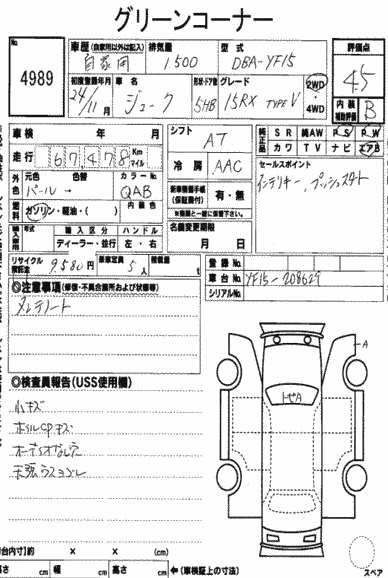 グリーンコーナー
No.
4989
車歴 (自家用以外は記入) 排気量 型式
自家用 1.500 DBA-YF15
初度登録年月 車名 形状・ドア数 グレード
24/11 月 ジューク 5HB 15RX TYPE V
2WD
4WD
評価点
4.5
内装補助評価 B
車検 年 月
走行 67478 Km マイル
シフト AT
冷房 AAC
純正品 SR 純AW PS PW
カワ TV ナビ エアB
セールスポイント
インテリキー、プッシュスタート
外色 元色 色替 カラーNo.
パール → QAB
燃料 ガソリン・軽油・( ) 内装色
新車整備手帳 (保証書付) 有・無
※商談と一緒に保管下さい。
名義変更期限
月 日
輸入車用 年式 輸入区分 ハンドル
ディーラー・並行 左・右
リサイクル預託金 9.580 円 乗車定員 5 人 積載量 t
登録No.
車台No. YF15-208629
シリアルNo.
◎注意事項 (修復・不具合箇所および状態等)
メンテノート
◎検査員報告(USS使用欄)
小キズ
ホイルCPキズ
オーディオなし穴
天張ウスヨゴレ
A
A
荷台内寸] 約 × × (cm)
長さ cm 幅 cm 高さ cm ← (車検証上の寸法)
スペア